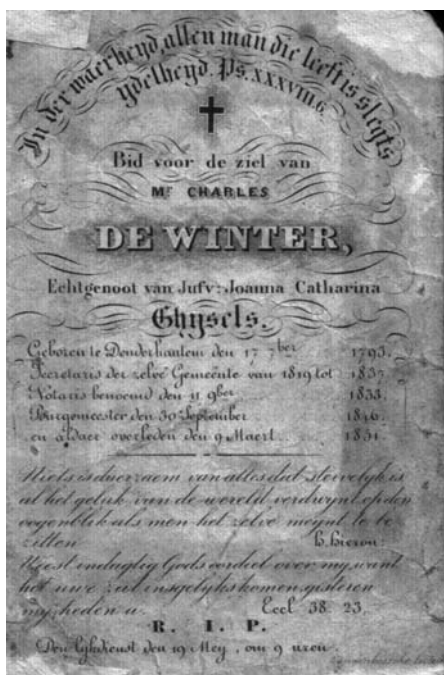 In der waerheyd, allen man die leeft is slegts
ydelheyd. Ps. XXXVIII.6.
Bid voor de ziel van
Mr CHARLES
DE WINTER,
Echtgenoot van Jufv: Joanna Catharina
Ghysels.
Geboren te Denderhautem den 17 7ber 1793.
Secretaris der zelve Gemeënte van 1819 tot 1837.
Notaris benoemd den 11 9ber 1833.
Bourgemeester den 30 September 1846.
en aldaer overleden den 9 Maert 1851.
Niets is duerzaem van alles dat sterwelyk is
al het geluk van de wereld verdwynt op den
oogenblik als men het zelve meynt te be
zitten H. Hieron:
Weest indagtig Gods oordeel over my, want
het uwe zal insgelyks komen, gisteren
my, heden u. Eccl 38. 23.
R. I. P.
Den lykdienst den 19 Mey, om 9 uren.